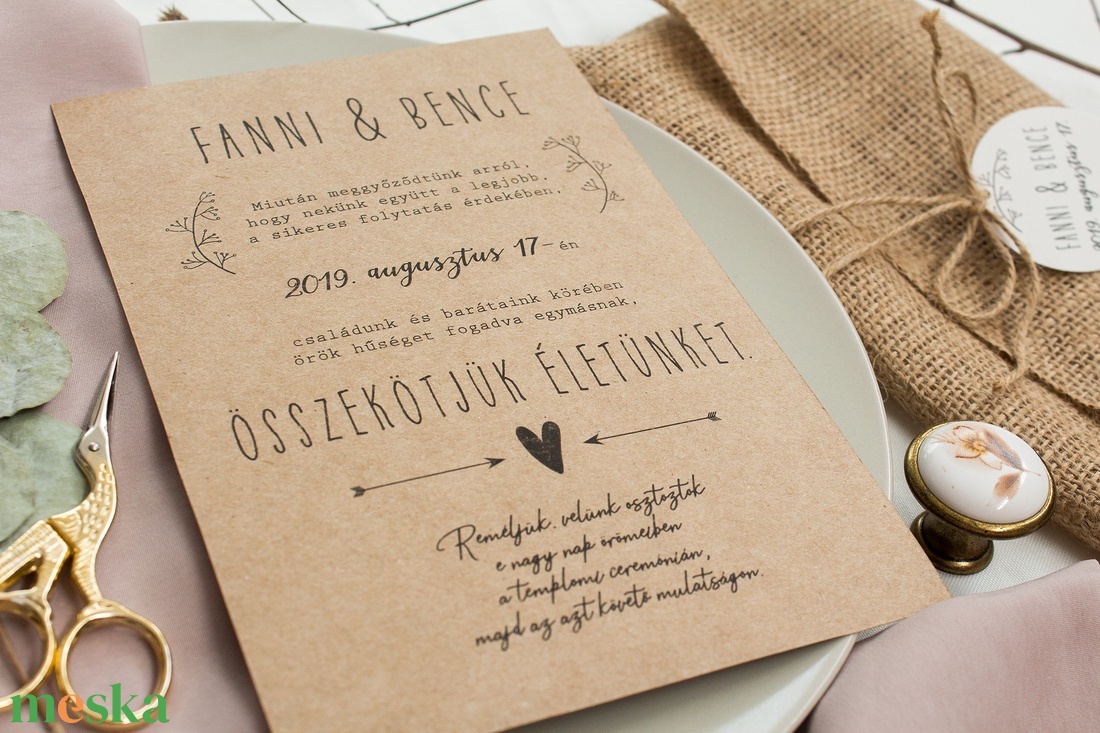 FANNI & BENCE
Miután meggyőződtünk arról,
hogy nekünk együtt a legjobb,
a sikeres folytatás érdekében,
2019. augusztus 17-én
családunk és barátaink körében
örök hűséget fogadva egymásnak,
ÖSSZEKÖTJÜK ÉLETÜNKET.
Reméljük, velünk osztoztok
e nagy nap örömeiben
a templomi ceremónián,
majd az azt követő mulatságon.
FANNI & BENCE
2019. augusztus 17.
meska